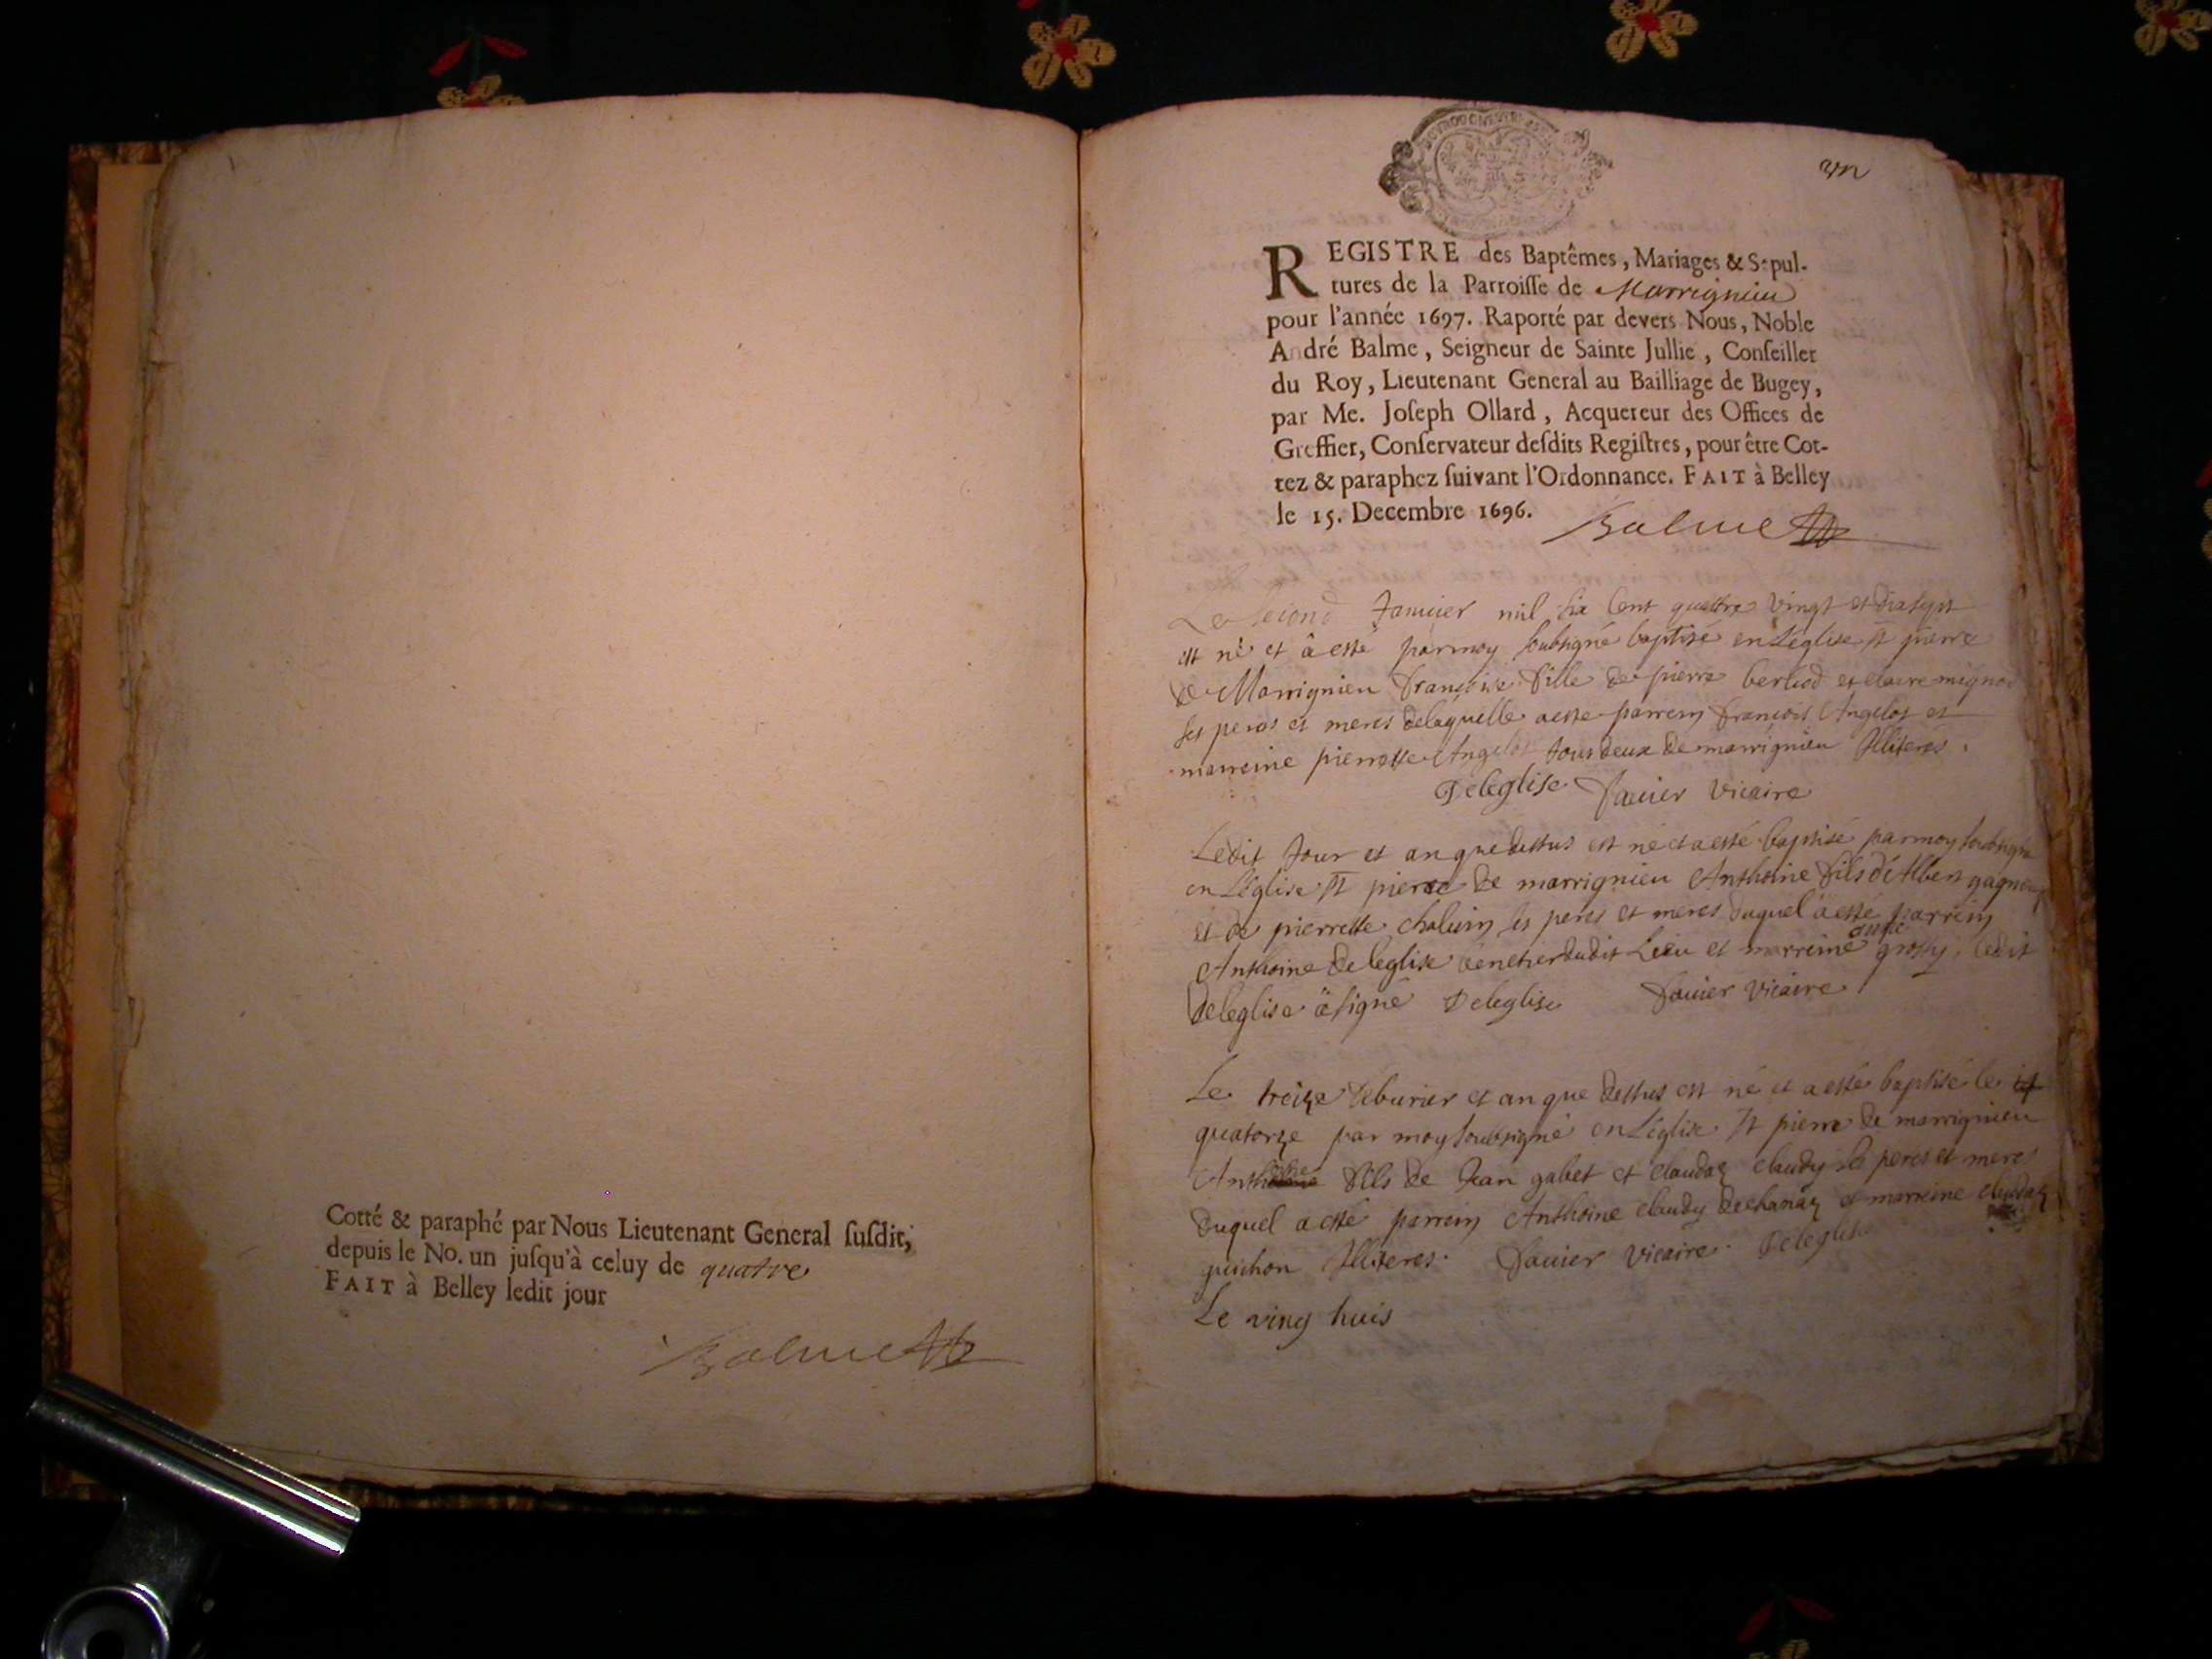 Cotté & paraphé par Nous Lieutenant General ſuſdit,
depuis le No. un juſqu'à celuy de quatre
FAIT à Belley ledit jour
Balme
un
REGISTRE des Baptêmes, Mariages & Sepul-
tures de la Parroiſſe de Marrignieu
pour l'année 1697. Raporté par devers Nous, Noble
André Balme, Seigneur de Sainte Jullie, Conſeiller
du Roy, Lieutenant General au Bailliage de Bugey,
par Me. Joſeph Ollard, Acquereur des Offices de
Greffier, Conſervateur deſdits Regiſtres, pour être Cot-
tez & paraphez ſuivant l'Ordonnance. FAIT à Belley
le 15. Decembre 1696.
Balme
Le second Januier mil six Cent quattre vingt et dixsept
est né et à esté parmoy soubsigné baptisé en L'église st pierre
de Marrignieu françoise fille de pierre berliod et claire mignod
ses peres et meres delaquelle aesté parrein françois Angelot et
marreine pierrette Angelot tous deux de marrignieu Illiterés.
Deleglise fauier vicaire
Ledit Jour et an que dessus est né et a esté baptisé parmoy soubsigné
en L'église st pierre de marrignieu Anthoine fils d'Alben
et de pierrette chaluin ses peres et meres duquel a esté parrein
Anthoine deleglise dudit Lieu et marreine ledit
deleglise à signé Deleglise fauier vicaire
Le treize feburier et an que dessus est né et a esté baptisé le
quatorze par moy soubsigné en L'église st pierre de marrignieu
fils de Jean gabet et claudaz claudy ses peres et meres
duquel a esté parrein Anthoine claudy dechanaz et marreine claudaz
guichon Illiteres. fauier vicaire. Deleglise
Le ving huis